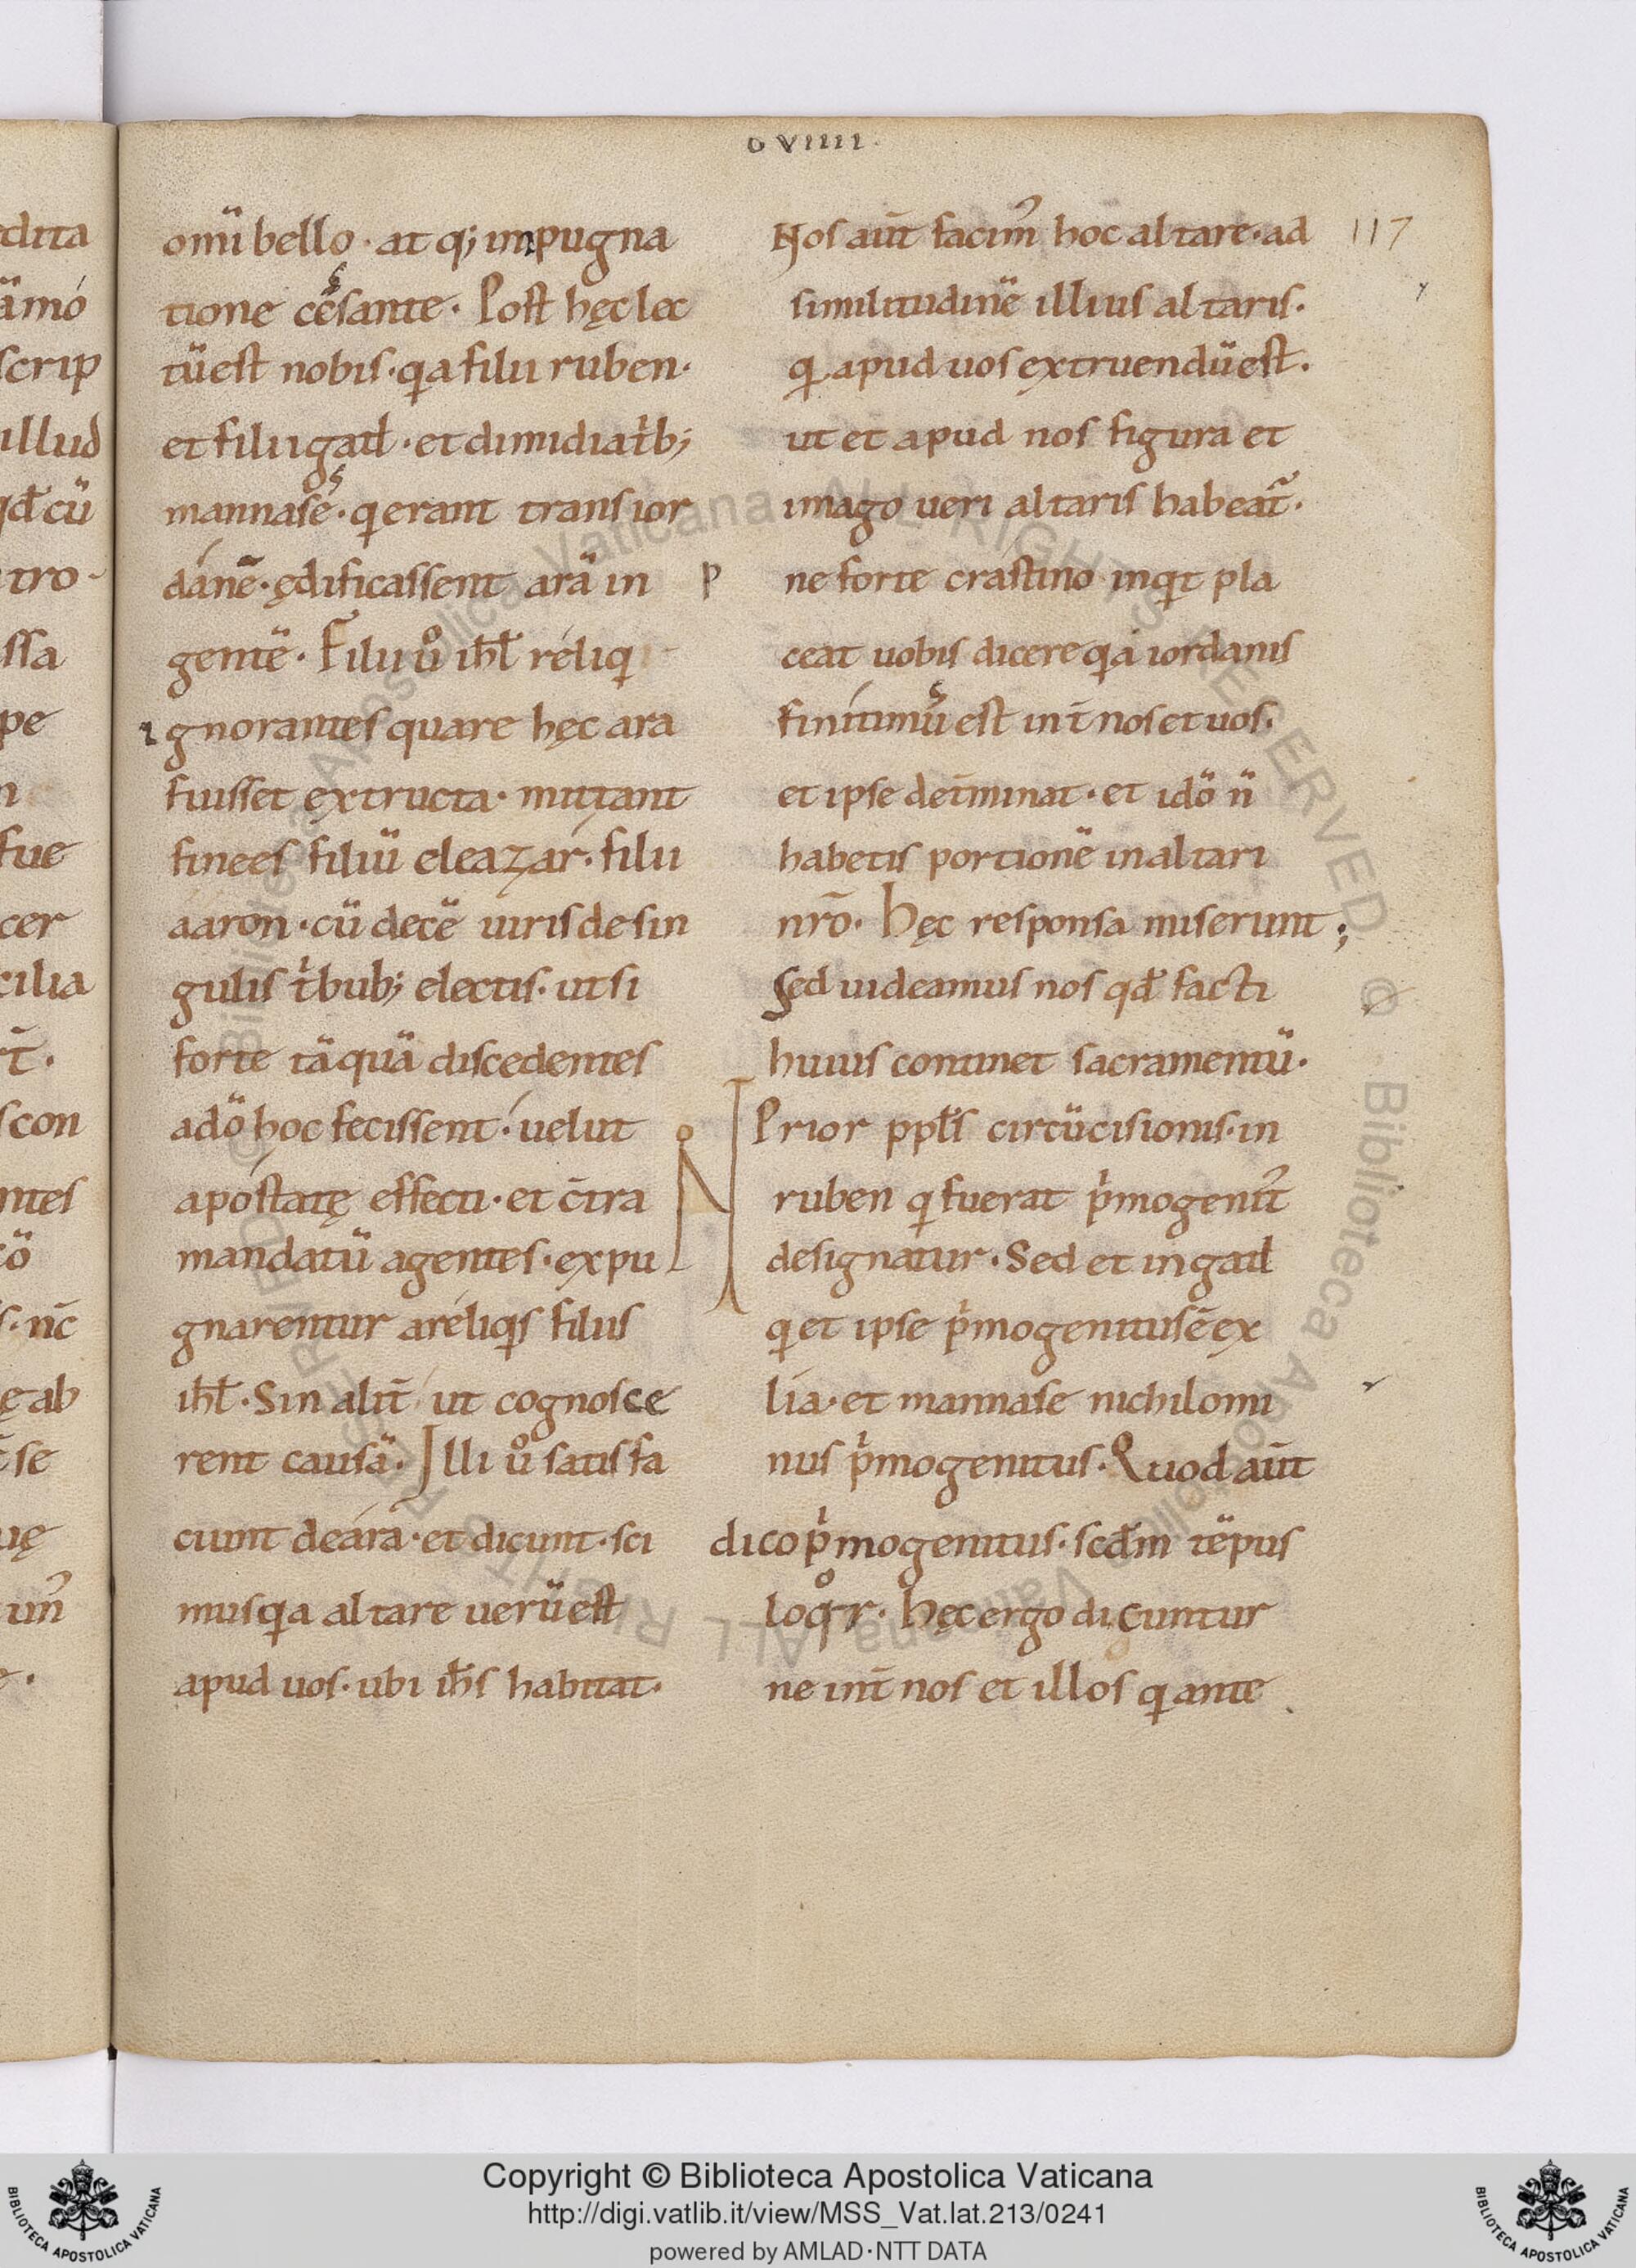 o viiii.
117
omī bello · atq; impugna
tione cēsante · Post hęc lec
tū est nobis · qa filii ruben ·
et filii gad · et dimidia t'b;
mannase · q erant trans ior
danē · ędificassent arā in
gentē · Filii ů ihl̄ reliq
ignorantes quare hęc ara
fuisset extructa · mittant
finees filiū eleazar · filii
aaron · cū decē uiris de sin
gulis t'bub; electis · ut si
forte tāquā discedentes
a dō hoc fecissent · uelut
apostatę effecti · et c̄tra
mandatū agentes · expu
gnarentur a reliqis filiis
ihl̄ · Sin alit̄ ut cognosce
rent causā · Illi ů satisfa
ciunt de ara · et dicunt · sci
mus qa altare uerū est
apud uos · ubi ih̄s habitat ·
p
Nos aūt facim' hoc altare · ad
similitudinē illius altaris ·
q apud uos extruendū est ·
ut et apud nos figura et
imago ueri altaris habeat̄ ·
ne forte crastino inqt pla
ceat uobis dicere qa iordanis
finitimus est int̄ nos et uos ·
et ipse det̄minat · et idō n̄
habetis portionē in altari
nr̄o · hęc responsa miserunt ;
Sed uideamus nos qd̄ facti
huius continet sacramentū ·
Prior ppl̄s circūcisionis · in
ruben q fuerat p'mogenit'
designatur · Sed et in gad
q et ipse p'mogenitus ē ex
lia · et mannase nichilomi
nus p'mogenitus · Quod aūt
dico p'mogenitus · scd̄m tēpus
loqr · hęc ergo dicuntur
ne int̄ nos et illos q ante
Copyright © Biblioteca Apostolica Vaticana
http://digi.vatlib.it/view/MSS_Vat.lat.213/0241
powered by AMLAD·NTT DATA